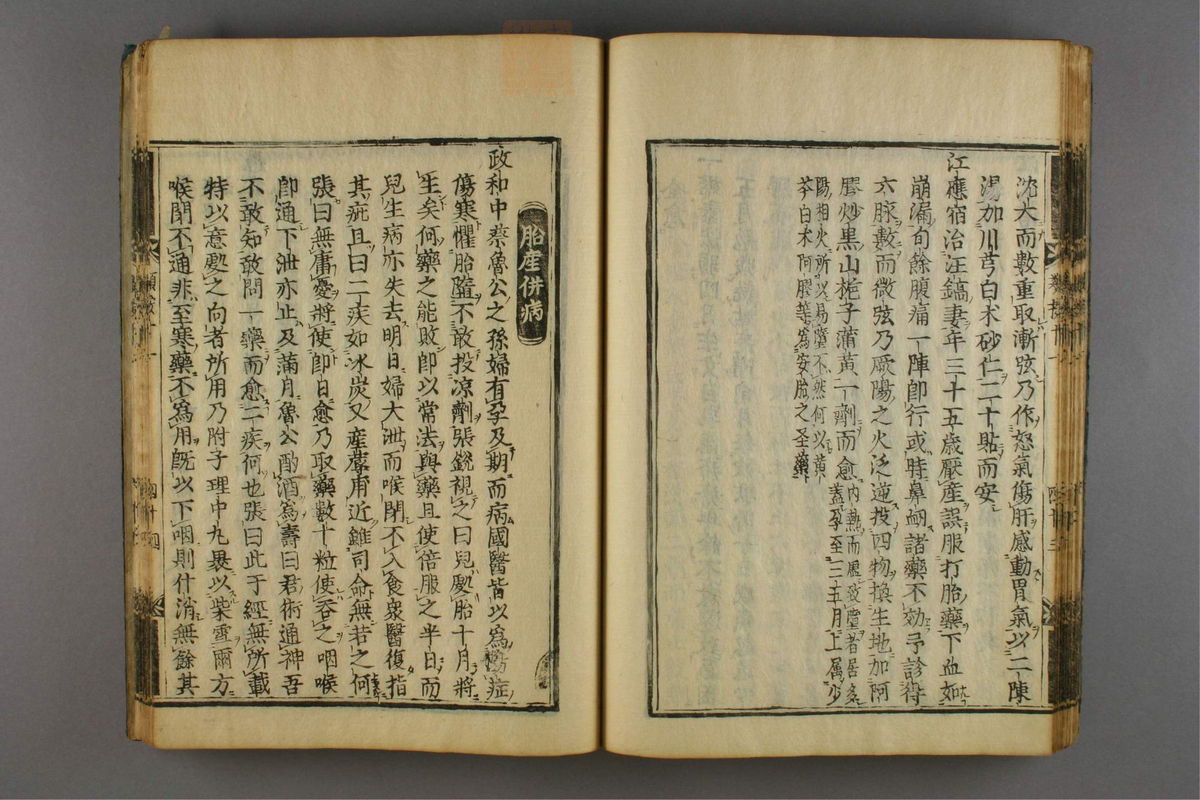 沈大而數重取漸弦乃作怒氣傷肝感動胃氣以二陳
湯加川芎白朮砂仁二十貼而安
江應宿治汪鎬妻年三十五歲厭産誤服打胎藥下血如
崩漏旬餘腹痛一陣卽行或時鼻衂諸藥不効予診得
六脉數而微弦乃厥陽之火泛逆投四物換生地加阿
膠炒黒山梔子蒲黃一劑而愈
内熱而虛致墮者居多
蓋孕至三五月上属少
陽相火所以易墮不然何以黃
芩白朮阿膠等爲安胎之圣藥
胎産併病
政和中蔡魯公之孫婦有孕及期而病國醫皆以爲症
傷寒懼胎隨不敢投凉劑張銳視之曰兒處胎十月將
生矣何藥之能敗卽以常法與藥且使倍服之半日而
兒生病亦失去明日婦大泄而喉閉不入食衆醫復指
其疵且曰二疾如氷炭又産蓐甫近雖司命無若之何
張曰無庸憂將使卽日愈乃取藥數十粒使吞之咽喉
卽通下泄亦止及滿月魯公酌酒爲壽曰君術通神吾
不敢知敢問一藥而愈二疾何也張曰此于經無所載
特以意處之向者所用乃附子理中丸裹以紫雪爾方
喉閉不通非至寒藥不爲用旣以下咽則什消無餘其